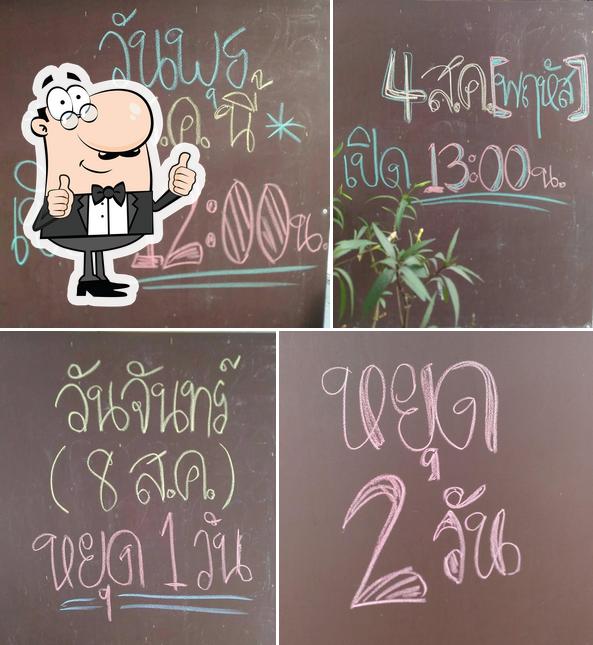 วันพุธ
ส.ค. นี้ *
12:00 น.
4 ส.ค. [พฤหัส]
เปิด 13:00 น.
วันจันทร์
(8 ส.ค.)
หยุด 1 วัน
หยุด
2 วัน